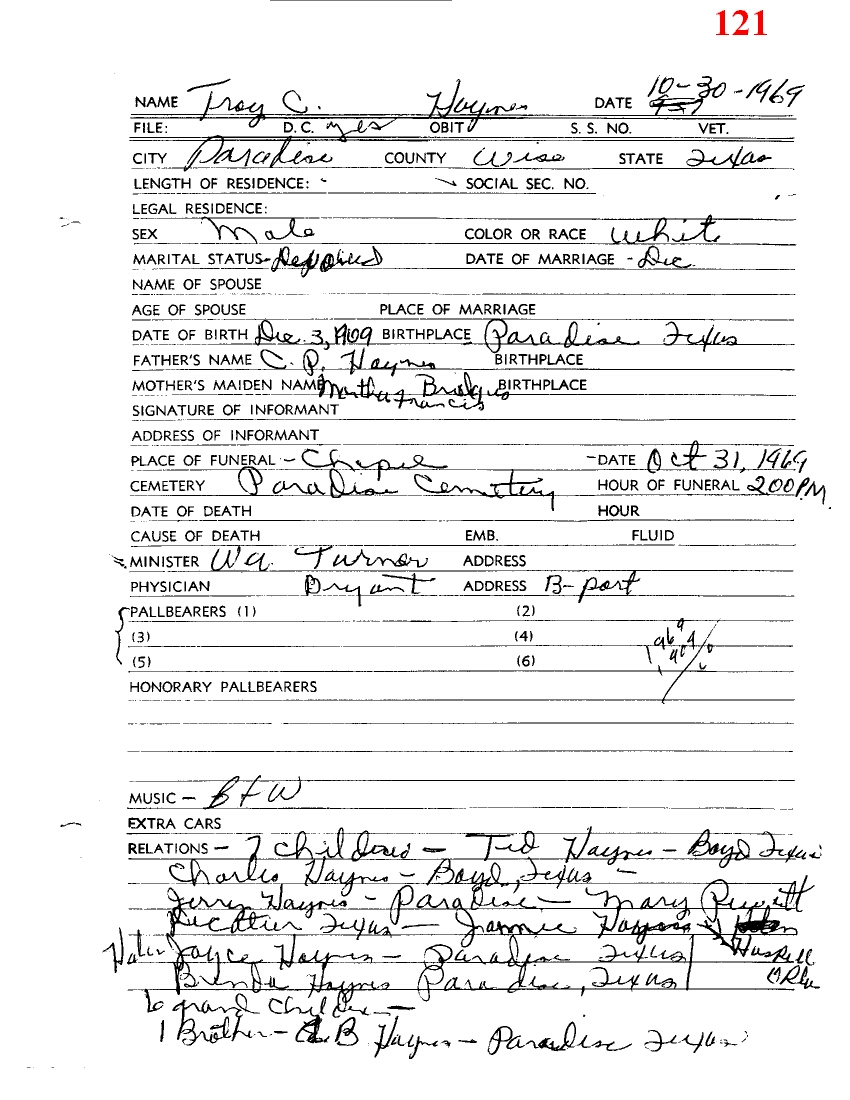 121
NAME Troy C. Haynes DATE 10-30-1969
FILE: D.C. yes OBIT S. S. NO. VET.
CITY Paradise COUNTY Wise STATE Texas
LENGTH OF RESIDENCE: - SOCIAL SEC. NO.
LEGAL RESIDENCE:
SEX Male COLOR OR RACE White
MARITAL STATUS- DATE OF MARRIAGE - Dec.
NAME OF SPOUSE
AGE OF SPOUSE PLACE OF MARRIAGE
DATE OF BIRTH Dec. 3, 1909 BIRTHPLACE Paradise Texas
FATHER'S NAME C. P. Haynes BIRTHPLACE
MOTHER'S MAIDEN NAME Martha Bridges BIRTHPLACE
Francis
SIGNATURE OF INFORMANT
ADDRESS OF INFORMANT
PLACE OF FUNERAL - Chapel - DATE Oct 31, 1969
CEMETERY Paradise Cemetery HOUR OF FUNERAL 200 P.M.
DATE OF DEATH HOUR
CAUSE OF DEATH EMB. FLUID
MINISTER W.A. Turner ADDRESS
PHYSICIAN Bryant ADDRESS B-port
PALLBEARERS (1) (2)
(3) (4)
(5) (6)
1969
1909
HONORARY PALLBEARERS
MUSIC - B+W
EXTRA CARS
RELATIONS - 7 Children - Ted Haynes - Boyd Texas
Charles Haynes - Boyd, Texas -
Jerry Haynes - Paradise - Mary
Texas - Jannie
Joyce Haynes - Paradise Texas Haskell
Brenda Haynes Paradise, Texas Okla
6 grand Children -
1 Brother - B Haynes - Paradise Texas